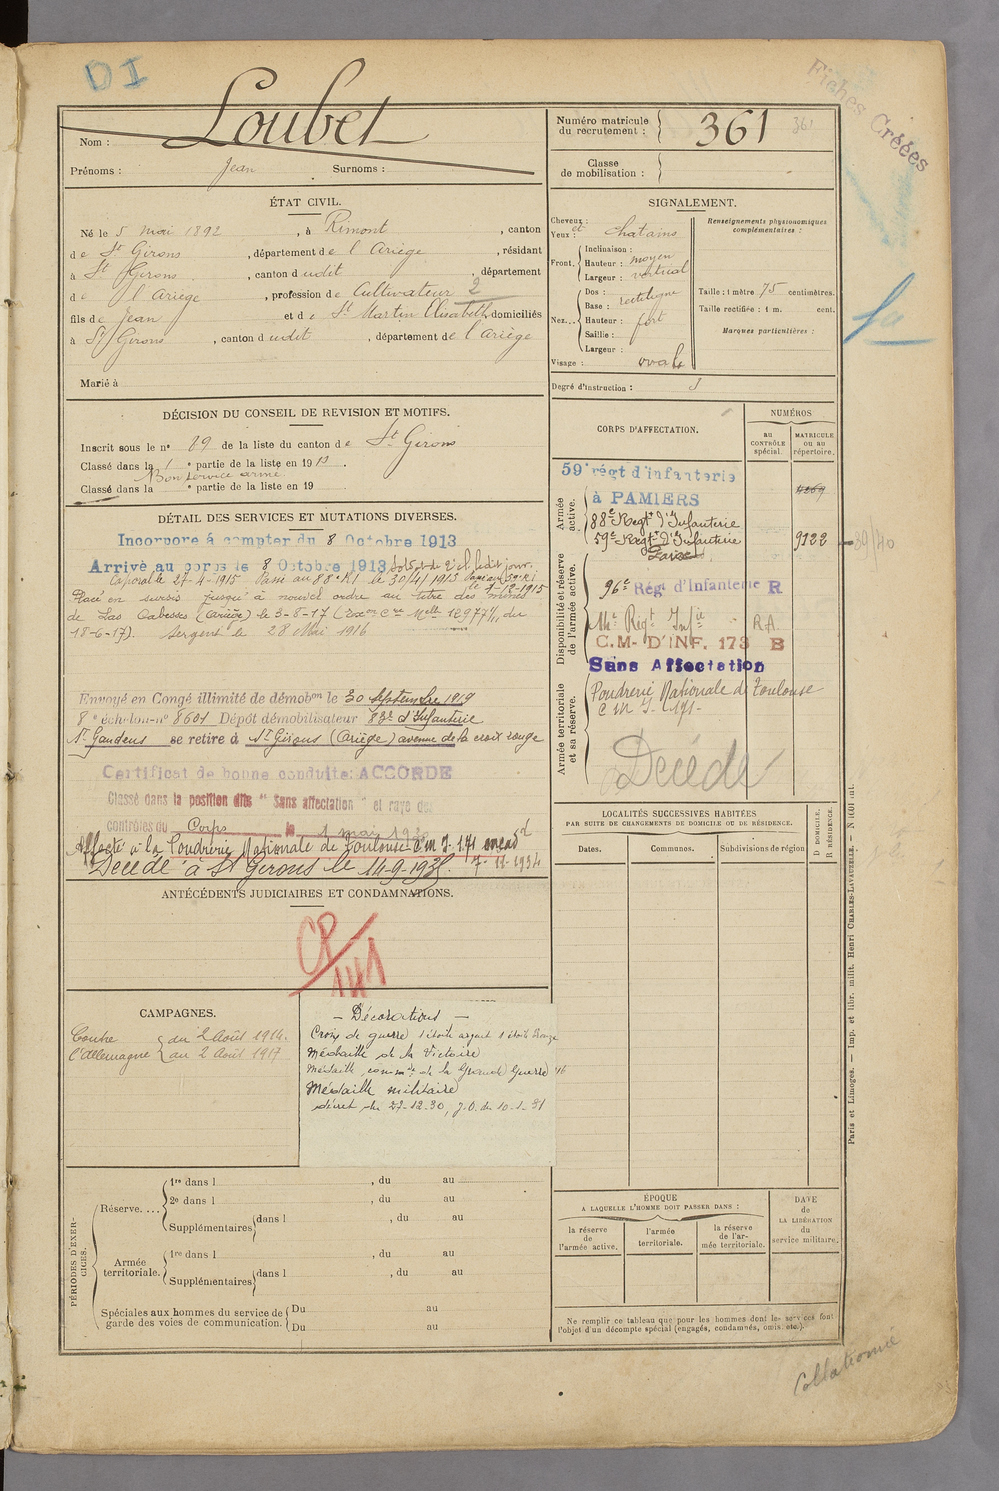 DI
Fiches Créées
Nom : Loubet
Prénoms : Jean Surnoms :
Numéro matricule
du recrutement : 361 361
Classe
de mobilisation :
ÉTAT CIVIL.
Né le 5 mai 1892, à Rimont, canton
de St Girons, département de l'Ariège, résidant
à St Girons, canton dudit, département
de l'Ariège, profession de Cultivateur 2
fils de Jean et de St Martin Elisabeth domiciliés
à St Girons, canton dudit, département de l'Ariège
Marié à
SIGNALEMENT.
Cheveux : et
Yeux : chatains
Front. Inclinaison :
Hauteur : moyen
Largeur : vertical
Nez... Dos : rectiligne
Base :
Hauteur : fort
Saillie :
Largeur :
Visage : ovale
Renseignements physionomiques
complémentaires :
Taille : 1 mètre 75 centimètres.
Taille rectifiée : 1 m. cent.
Marques particulières :
Degré d'instruction : 3
DÉCISION DU CONSEIL DE REVISION ET MOTIFS.
Inscrit sous le n° 89 de la liste du canton de St Girons
Classé dans la 1 e partie de la liste en 1913.
Bon service armé
Classé dans la e partie de la liste en 19
DÉTAIL DES SERVICES ET MUTATIONS DIVERSES.
Incorporé à compter du 8 Octobre 1913
Arrivé au corps le 8 Octobre 1913, soldat de 2e cl. ledit jour.
Caporal le 27-4-1915 Passé au 88e RI le 30/4/1915 Passé au 59e RI
le 7-12-1915
Placé en sursis jusqu'à nouvel ordre au titre des mines
de Las Cabesses (Ariège) le 3-8-17 (Don Cre Melle 12977 1/11 du
18-6-17). Sergent le 28 Mai 1916
Envoyé en Congé illimité de démobon le 30 septembre 1919
8e échelon - n° 8601 Dépôt démobilisateur 83e d'Infanterie
St Gaudens se retire à St Girons (Ariège) avenue de la croix rouge
Certificat de bonne conduite: ACCORDÉ
Classé dans la position dite "Sans affectation" et rayé des
contrôles du Corps le 1 mai 19
Affecté à la Poudrerie Nationale de Toulouse C.M.I. 171
7-11-1934
Décédé à St Girons le 14-9-1935.
ANTÉCÉDENTS JUDICIAIRES ET CONDAMNATIONS.
CP
141
CORPS D'AFFECTATION.
NUMÉROS
au
CONTRÔLE
spécial.
MATRICULE
ou au
répertoire.
Armée
active.
59e régt d'infanterie
à PAMIERS
88e Régt d'Infanterie
59e Régt d'Infanterie
9122
Disponibilité et réserve
de l'armée active.
96e Rég. d'Infanterie R
14e Régt Infie R.A.
C.M. D'INF. 173 B
Sans Affectation
Armée territoriale
et sa réserve.
Poudrerie Nationale de Toulouse
C M I 171-
Décédé
LOCALITÉS SUCCESSIVES HABITÉES
PAR SUITE DE CHANGEMENTS DE DOMICILE OU DE RÉSIDENCE.
Dates. Communes. Subdivisions de région
D DOMICILE.
R RÉSIDENCE.
CAMPAGNES.
Contre du 2 Août 1914.
l'Allemagne au 2 Août 1917
- Décorations -
Croix de guerre 1 étoile argent 1 étoile bronze
Médaille de la Victoire
Médaille commve de la Grande Guerre
Médaille militaire
décret du 29-12-30, J.O. du 10-1-31
PÉRIODES D'EXERCICES.
Réserve.... 1re dans l , du au
2e dans l , du au
Supplémentaires dans l , du au
Armée
territoriale. 1re dans l , du au
Supplémentaires dans l , du au
Spéciales aux hommes du service de
garde des voies de communication. Du au
Du au
ÉPOQUE
A LAQUELLE L'HOMME DOIT PASSER DANS :
la réserve
de
l'armée active.
l'armée
territoriale.
la réserve
de l'ar-
mée territoriale.
DATE
de
LA LIBÉRATION
du
service militaire.
Ne remplir ce tableau que pour les hommes dont les services font
l'objet d'un décompte spécial (engagés, condamnés, omis, etc.).
Paris et Limoges. — Imp. et libr. milit. Henri CHARLES-LAVAUZELLE.
Collationné